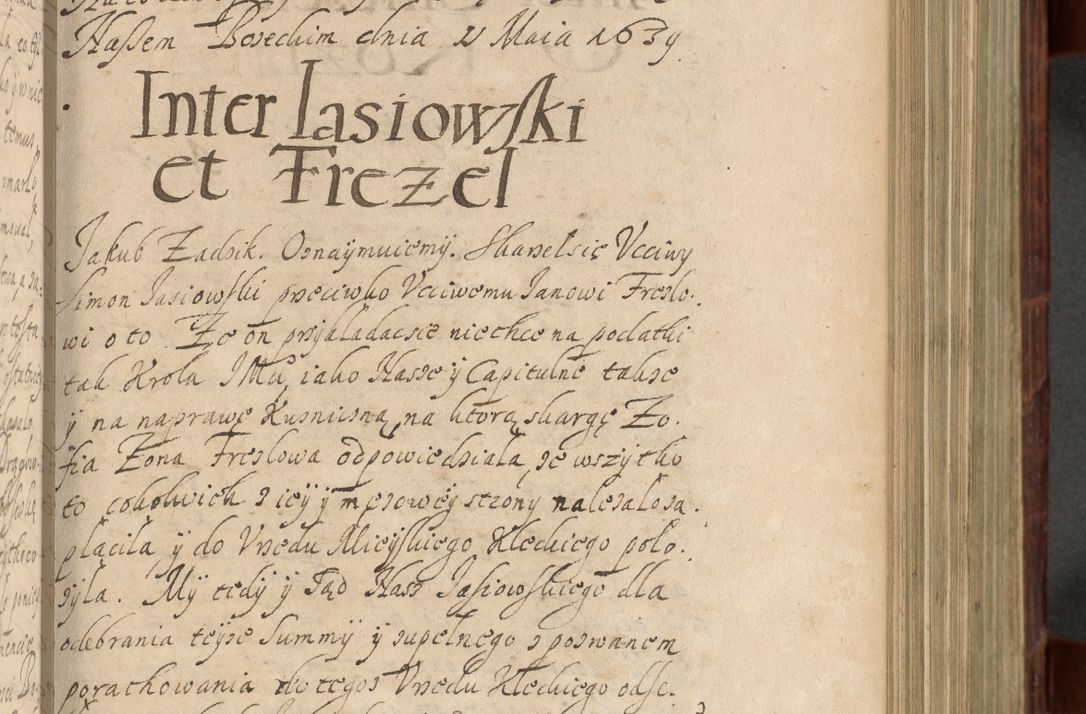 Haſsem Bosechim dnia 21 Maia 1639.
Inter Iasiowſki
et Frezel
Jakub Zadzik. Oznaÿmuiemÿ. Skarzel się Vcciwy
Simon Jasiowſki przeciwko Vcciwemu Janowi Frezlo.
wi o to. Ze on przÿkladac sie nie chce na podatki
tak Krola JMci, iako Nasze ÿ Capitulne takze
ÿ na naprawę Kuzniczną, na ktorą skargę Zo.
fia Zona Frezlowa odpowiedziala, ze wszÿtko
to cokolwiek z ieÿ ÿ męzoweÿ strony nalezalo za.
placila ÿ do Vrzedu Mieÿſkiego Kleckiego polo.
zÿla. Mÿ tedÿ ÿ Sąd Nasz Jasiowſkiego dla
odebrania teÿze Summÿ ÿ zupelnego z pozwanem
porachowania do tegoz Vrzedu Kleckiego odſe.